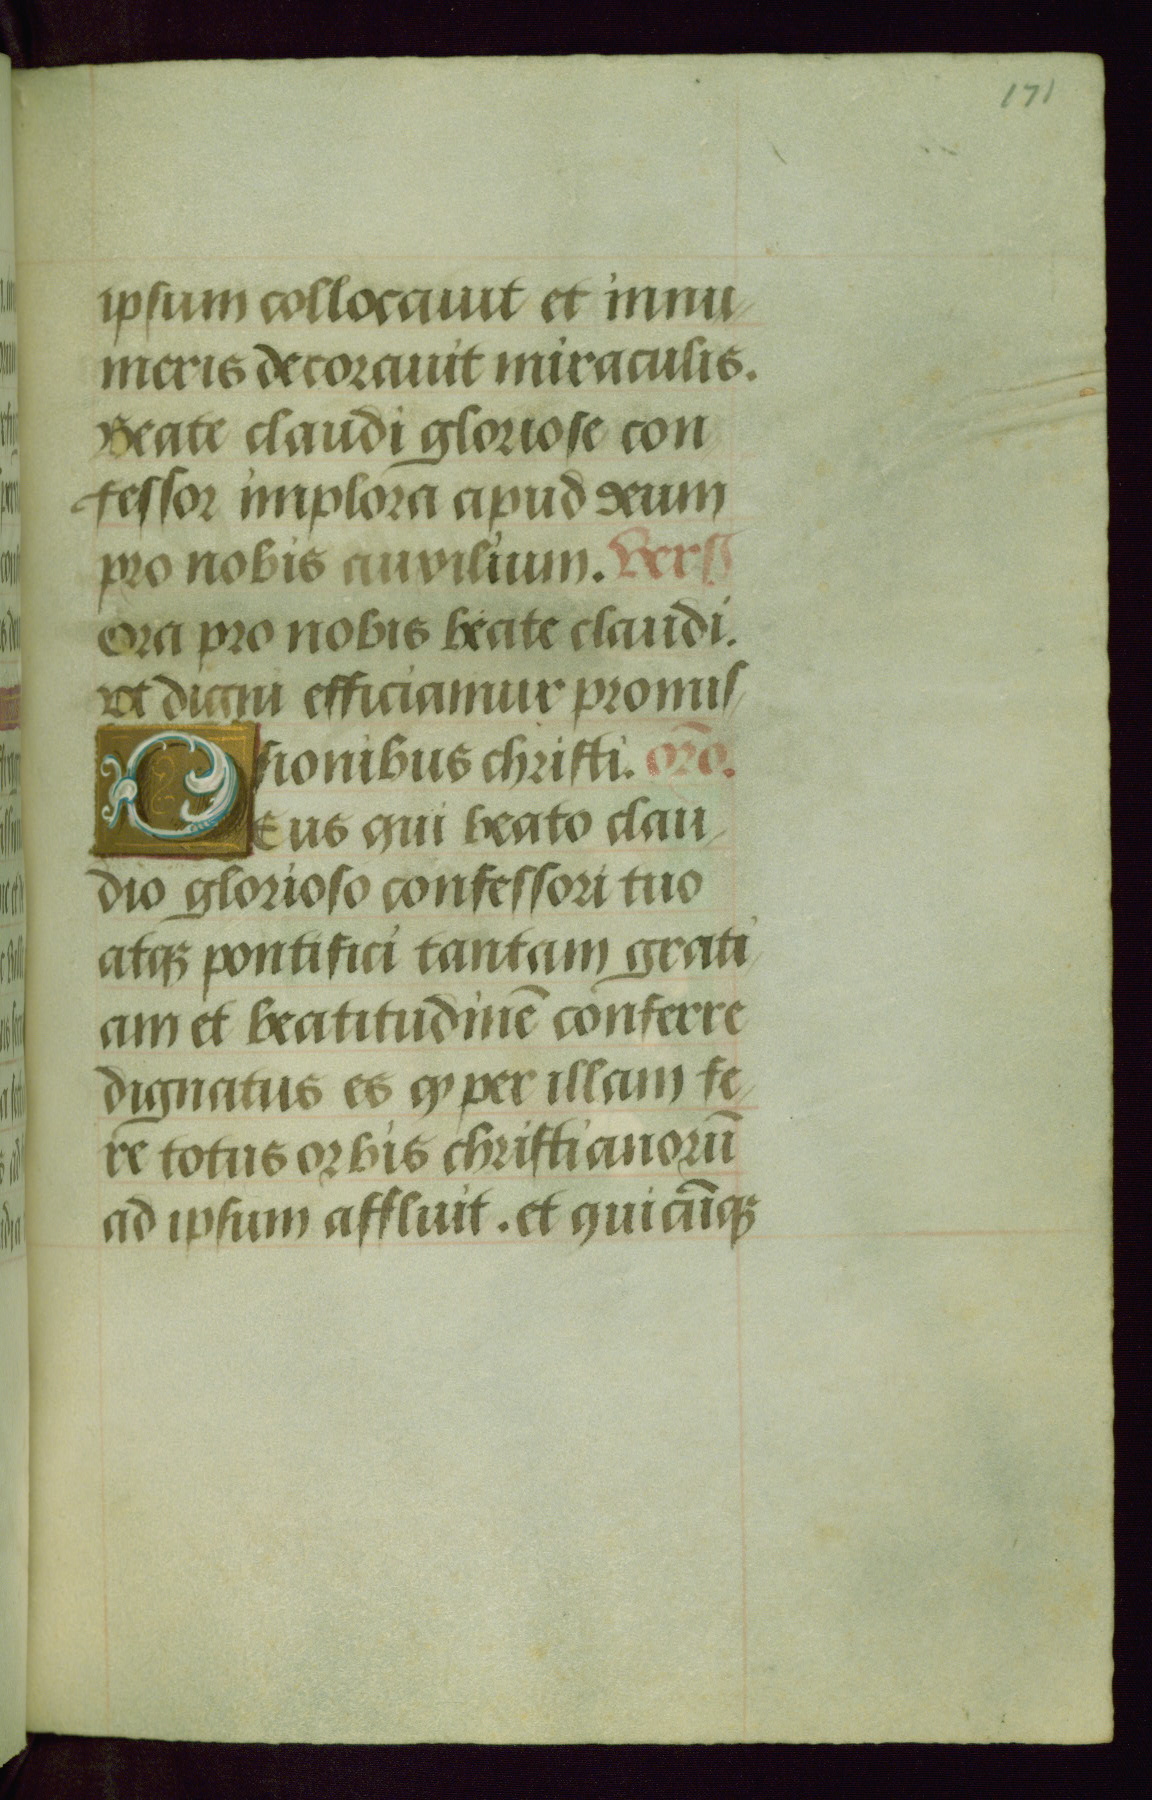 171
ipsum collocauit et innu
meris decorauit miraculis.
Beate claudi gloriose con
fessor implora apud deum
pro nobis auxilium. Vers
Ora pro nobis beate claudi.
Vt digni efficiamur promis
sionibus christi. orõ.
Deus qui beato clau
dio glorioso confessori tuo
atqꝫ pontifici tantam grati
am et beatitudinẽ conferre
dignatus es ꝙ per illam fe
re totus orbis christianorũ
ad ipsum affluit. et quicũqꝫ